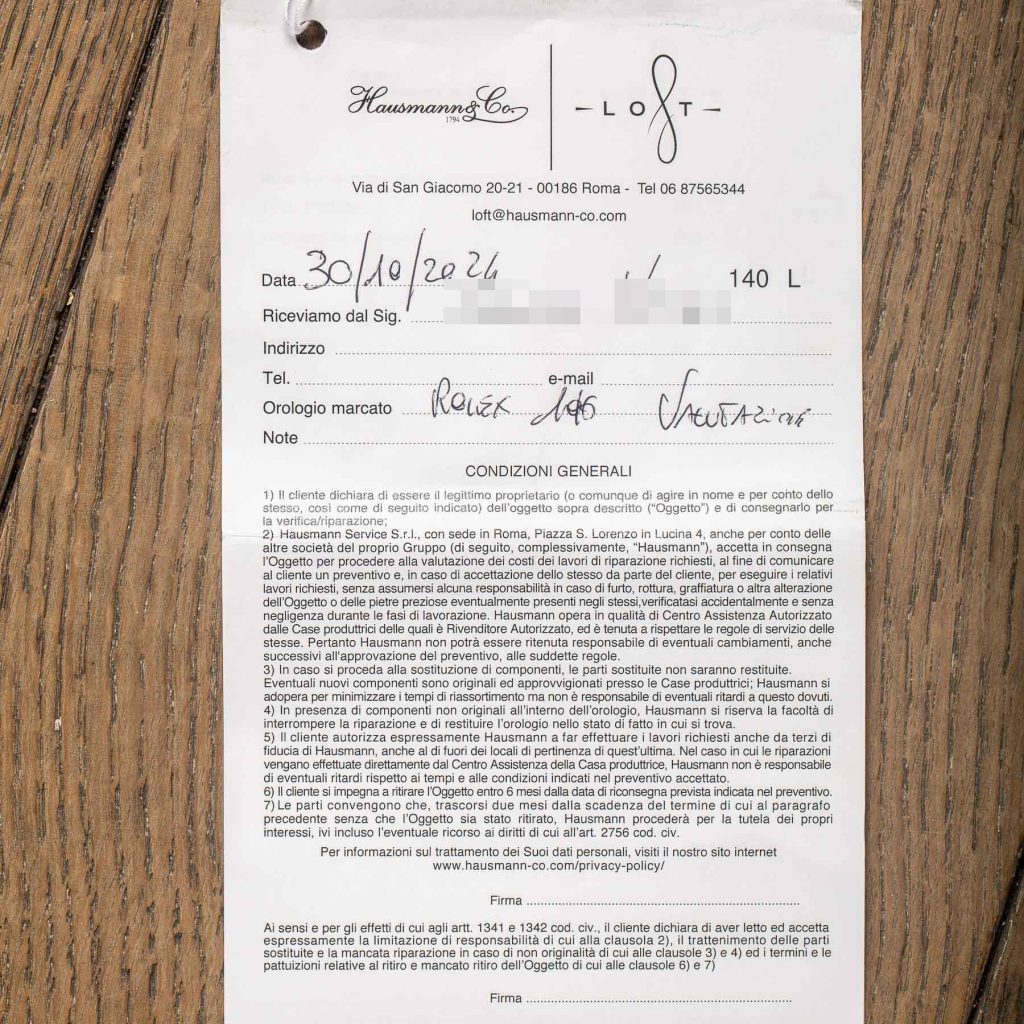 Hausmann & Co.
1794
LOFT
Via di San Giacomo 20-21 - 00186 Roma - Tel 06 87565344
loft@hausmann-co.com
Data 30/10/2024 140 L
Riceviamo dal Sig.
Indirizzo
Tel. e-mail
Orologio marcato ROLEX Valutazione
Note
CONDIZIONI GENERALI
1) Il cliente dichiara di essere il legittimo proprietario (o comunque di agire in nome e per conto dello
stesso, così come di seguito indicato) dell'oggetto sopra descritto ("Oggetto") e di consegnarlo per
la verifica/riparazione;
2) Hausmann Service S.r.l., con sede in Roma, Piazza S. Lorenzo in Lucina 4, anche per conto delle
altre società del proprio Gruppo (di seguito, complessivamente, "Hausmann"), accetta in consegna
l'Oggetto per procedere alla valutazione dei costi dei lavori di riparazione richiesti, al fine di comunicare
al cliente un preventivo e, in caso di accettazione dello stesso da parte del cliente, per eseguire i relativi
lavori richiesti, senza assumersi alcuna responsabilità in caso di furto, rottura, graffiatura o altra alterazione
dell'Oggetto o delle pietre preziose eventualmente presenti negli stessi,verificatasi accidentalmente e senza
negligenza durante le fasi di lavorazione. Hausmann opera in qualità di Centro Assistenza Autorizzato
dalle Case produttrici delle quali è Rivenditore Autorizzato, ed è tenuta a rispettare le regole di servizio delle
stesse. Pertanto Hausmann non potrà essere ritenuta responsabile di eventuali cambiamenti, anche
successivi all'approvazione del preventivo, alle suddette regole.
3) In caso si proceda alla sostituzione di componenti, le parti sostituite non saranno restituite.
Eventuali nuovi componenti sono originali ed approvvigionati presso le Case produttrici; Hausmann si
adopera per minimizzare i tempi di riassortimento ma non è responsabile di eventuali ritardi a questo dovuti.
4) In presenza di componenti non originali all'interno dell'orologio, Hausmann si riserva la facoltà di
interrompere la riparazione e di restituire l'orologio nello stato di fatto in cui si trova.
5) Il cliente autorizza espressamente Hausmann a far effettuare i lavori richiesti anche da terzi di
fiducia di Hausmann, anche al di fuori dei locali di pertinenza di quest'ultima. Nel caso in cui le riparazioni
vengano effettuate direttamente dal Centro Assistenza della Casa produttrice, Hausmann non è responsabile
di eventuali ritardi rispetto ai tempi e alle condizioni indicati nel preventivo accettato.
6) Il cliente si impegna a ritirare l'Oggetto entro 6 mesi dalla data di riconsegna prevista indicata nel preventivo.
7) Le parti convengono che, trascorsi due mesi dalla scadenza del termine di cui al paragrafo
precedente senza che l'Oggetto sia stato ritirato, Hausmann procederà per la tutela dei propri
interessi, ivi incluso l'eventuale ricorso ai diritti di cui all'art. 2756 cod. civ.
Per informazioni sul trattamento dei Suoi dati personali, visiti il nostro sito internet
www.hausmann-co.com/privacy-policy/
Firma
Ai sensi e per gli effetti di cui agli artt. 1341 e 1342 cod. civ., il cliente dichiara di aver letto ed accetta
espressamente la limitazione di responsabilità di cui alla clausola 2), il trattenimento delle parti
sostituite e la mancata riparazione in caso di non originalità di cui alle clausole 3) e 4) ed i termini e le
pattuizioni relative al ritiro e mancato ritiro dell'Oggetto di cui alle clausole 6) e 7)
Firma